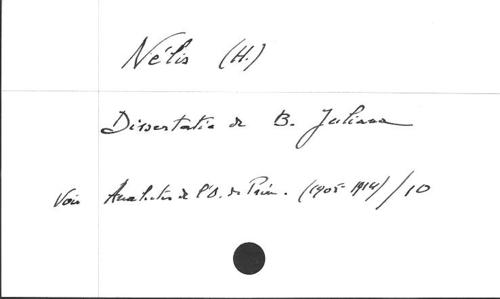 Nélis (H.)
Dissertatio de B. Juliana
Voir Analectes de l'O. de Prém. (1905-1914)/10